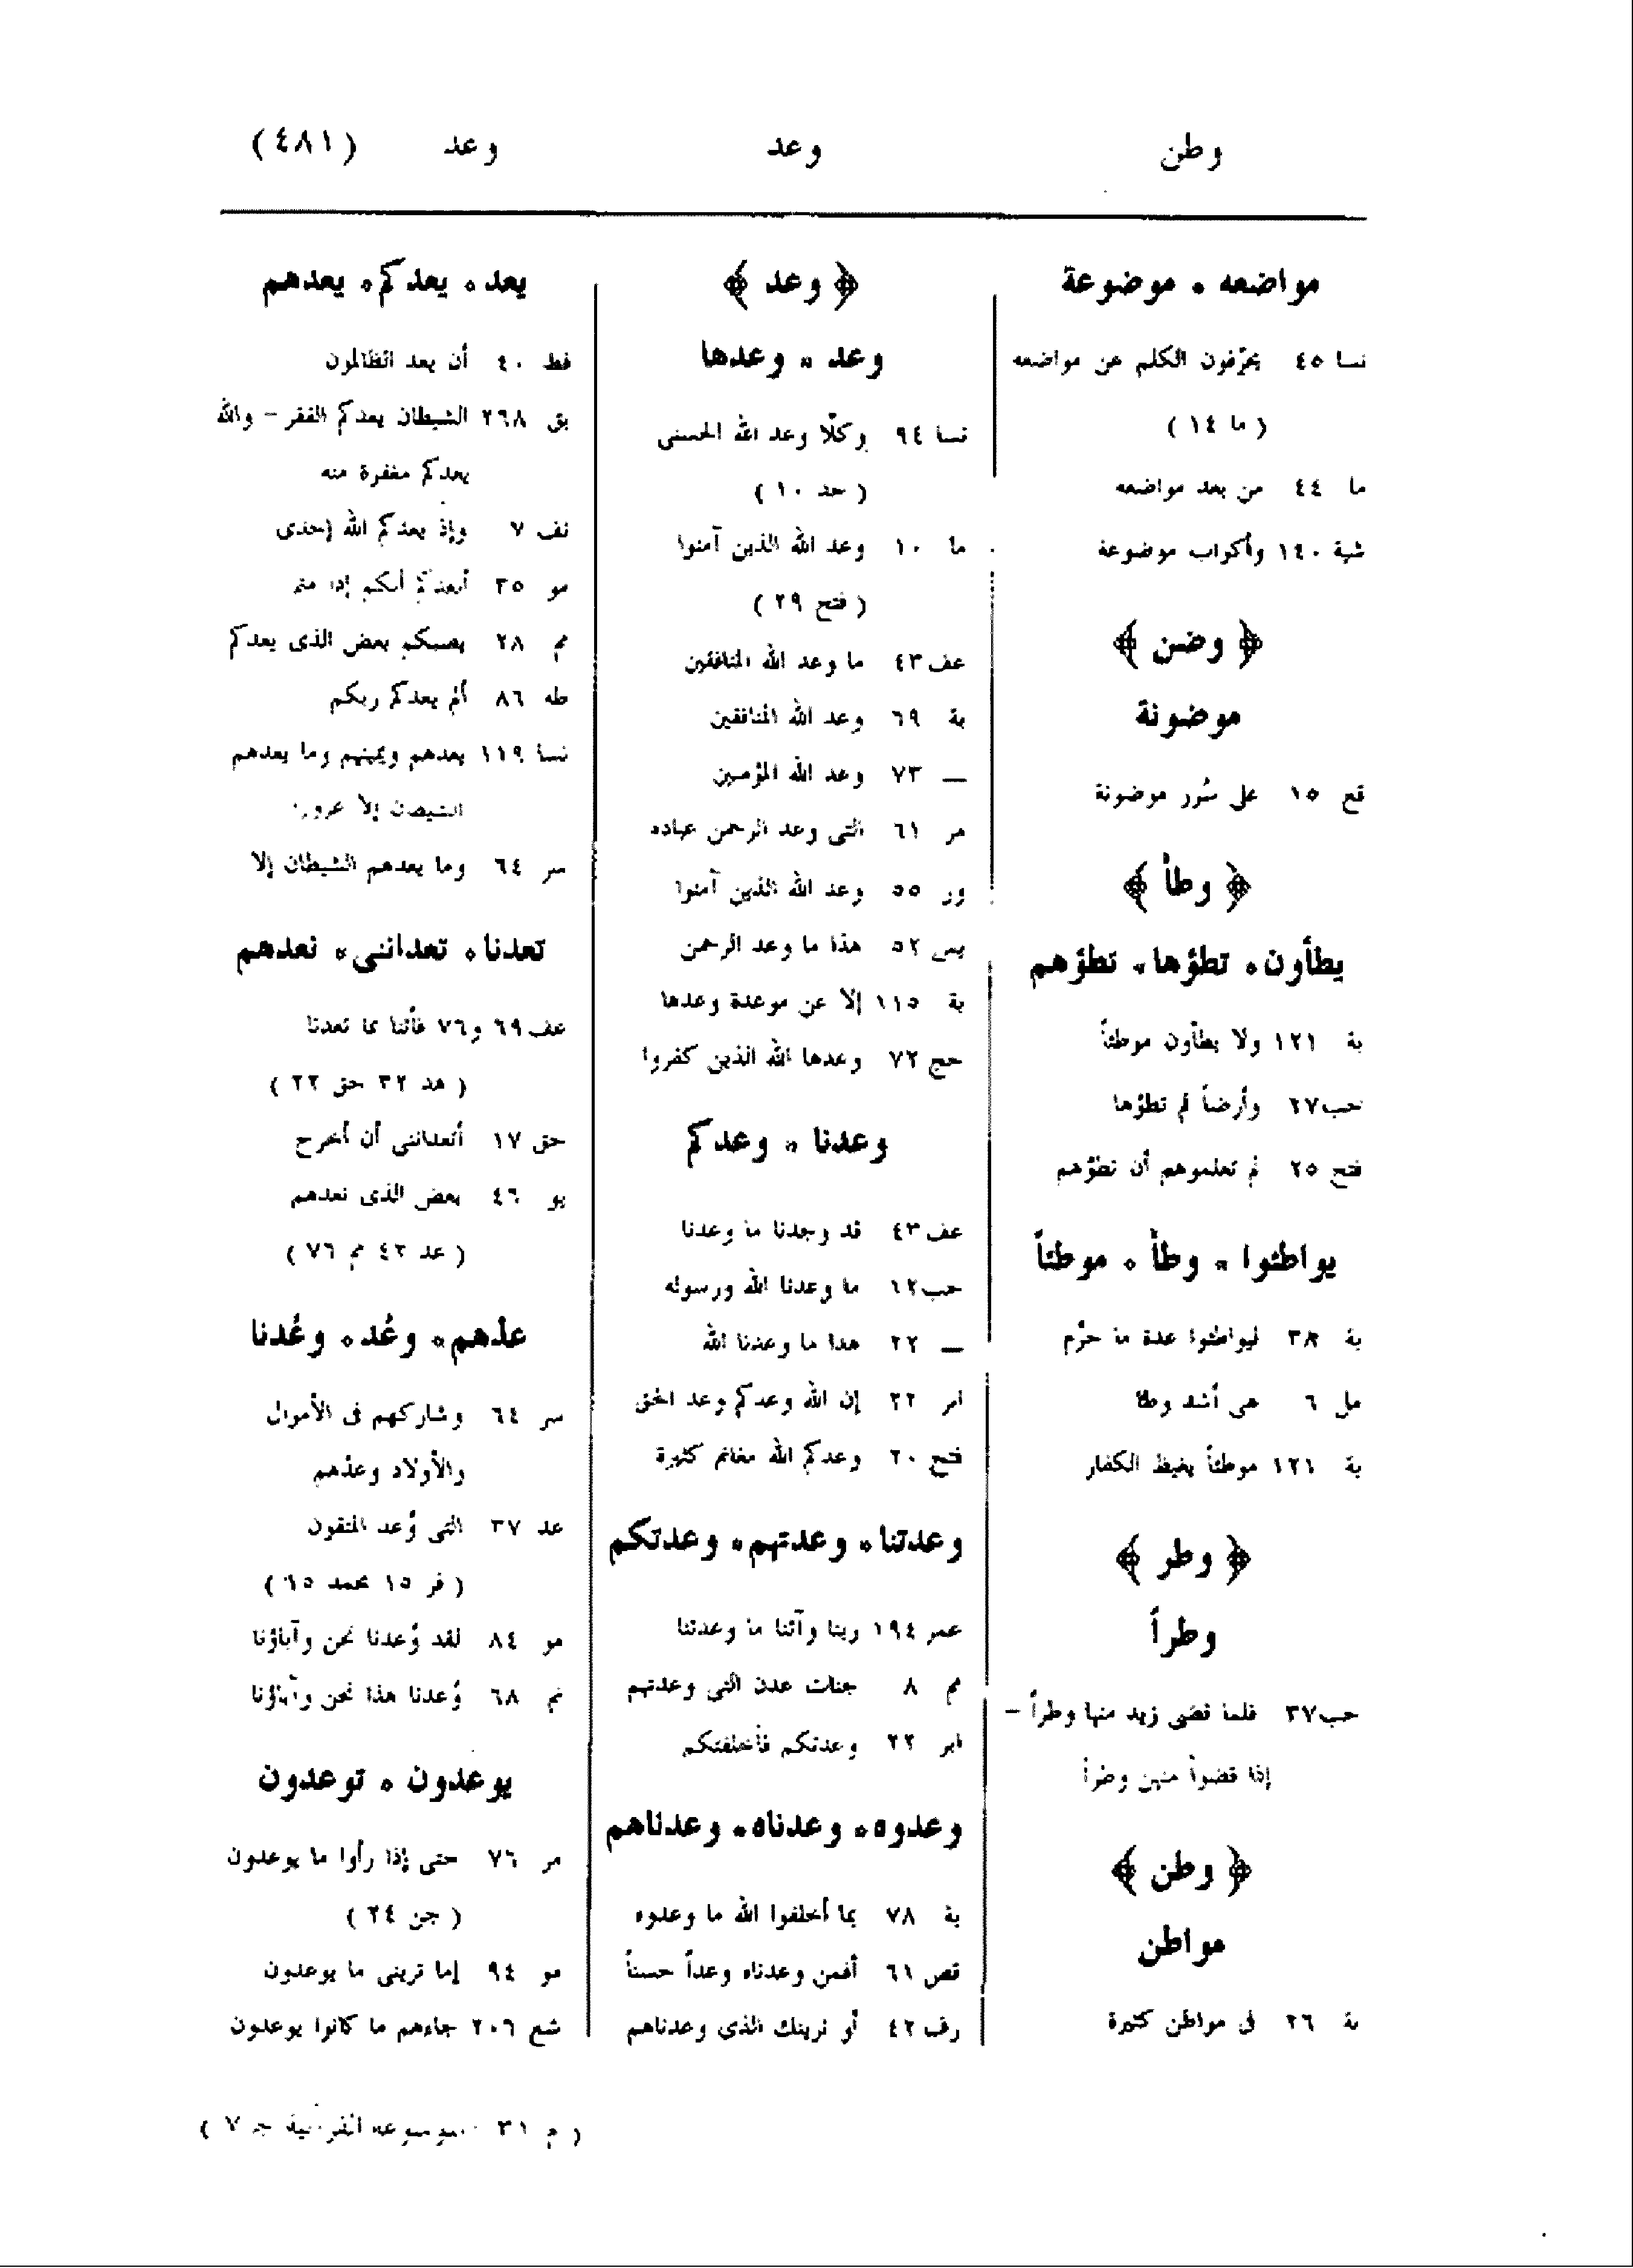 وطن
وعد
وعد (٤٨١)
مواضعه ٠ موضوعة
نسا ٤٥ يحرّفون الكلم عن مواضعه
( ما ١٤ )
ما ٤٤ من بعد مواضعه
شية ١٤٠ وأكواب موضوعة
﴿ وضن ﴾
موضونة
قع ١٥ على سُرر موضونة
﴿ وطأ ﴾
يطأون ٠ تطؤها ٠ تطؤهم
بة ١٢١ ولا يطأون موطئاً
حب ٢٧ وأرضاً لم تطؤها
فتح ٢٥ لم تعلموهم أن تطؤهم
يواطئوا ٠ وطأ ٠ موطئاً
بة ٣٨ ليواطئوا عدة ما حرّم
مل ٦ هى أشد وطئا
بة ١٢١ موطئاً يغيظ الكفار
﴿ وطر ﴾
وطراً
حب ٣٧ فلما قضى زيد منها وطراً –
إذا قضوا منهن وطراً
﴿ وطن ﴾
مواطن
بة ٢٦ فى مواطن كثيرة
﴿ وعد ﴾
وعد ٠ وعدها
نسا ٩٤ وكلّا وعد الله الحسنى
( حد ١٠ )
ما ١٠ وعد الله الذين آمنوا
( فتح ٢٩ )
عف ٤٣ ما وعد الله المنافقين
بة ٦٩ وعد الله المنافقين
— ٧٣ وعد الله المؤمنين
مر ٦١ التى وعد الرحمن عباده
ور ٥٥ وعد الله الذين آمنوا
يس ٥٢ هذا ما وعد الرحمن
بة ١١٥ إلا عن موعدة وعدها
حج ٧٢ وعدها الله الذين كفروا
وعدنا ٠ وعدكم
عف ٤٣ قد وجدنا ما وعدنا
حب ١٢ ما وعدنا الله ورسوله
— ٢٢ هذا ما وعدنا الله
ابر ٢٢ إن الله وعدكم وعد الحق
فتح ٢٠ وعدكم الله مغانم كثيرة
وعدتنا ٠ وعدتهم ٠ وعدتكم
عمر ١٩٤ ربنا وآتنا ما وعدتنا
مم ٨ جنات عدن التى وعدتهم
ابر ٢٢ وعدتكم فأخلفتكم
وعدوه ٠ وعدناه ٠ وعدناهم
بة ٧٨ بما أخلفوا الله ما وعدوه
قص ٦١ أفمن وعدناه وعداً حسناً
رف ٤٢ أو نرينك الذى وعدناهم
يعد ٠ يعدكم ٠ يعدهم
فط ٤٠ أن يعد الظالمون
بق ٢٦٨ الشيطان يعدكم الفقر – والله
يعدكم مغفرة منه
نف ٧ وإذ يعدكم الله إحدى
مو ٣٥ أيعدكم أنكم إذا متم
مم ٢٨ يصبكم بعض الذى يعدكم
طه ٨٦ ألم يعدكم ربكم
نسا ١١٩ يعدهم ويمنيهم وما يعدهم
الشيطان إلا غرورا
سر ٦٤ وما يعدهم الشيطان إلا
تعدنا ٠ تعداننى ٠ نعدهم
عف ٦٩ و٧٦ فأتنا بما تعدنا
( هد ٣٢ حق ٢٢ )
حق ١٧ أتعداننى أن أخرج
يو ٤٦ بعض الذى نعدهم
( عد ٤٢ مم ٧٦ )
عدْهم ٠ وعُد ٠ وعُدنا
سر ٦٤ وشاركهم فى الأموال
والأولاد وعدهم
عد ٣٧ التى وُعد المتقون
( فر ١٥ محمد ٦٥ )
مو ٨٤ لقد وُعدنا نحن وآباؤنا
نم ٦٨ وُعدنا هذا نحن وآباؤنا
يوعدون ٠ توعدون
مر ٧٦ حتى إذا رأوا ما يوعدون
( جن ٢٤ )
مو ٩٤ إما ترينى ما يوعدون
شع ٢٠٦ جاءهم ما كانوا يوعدون
( م ٣١ الموسوعة القرآنية جـ ٧ )